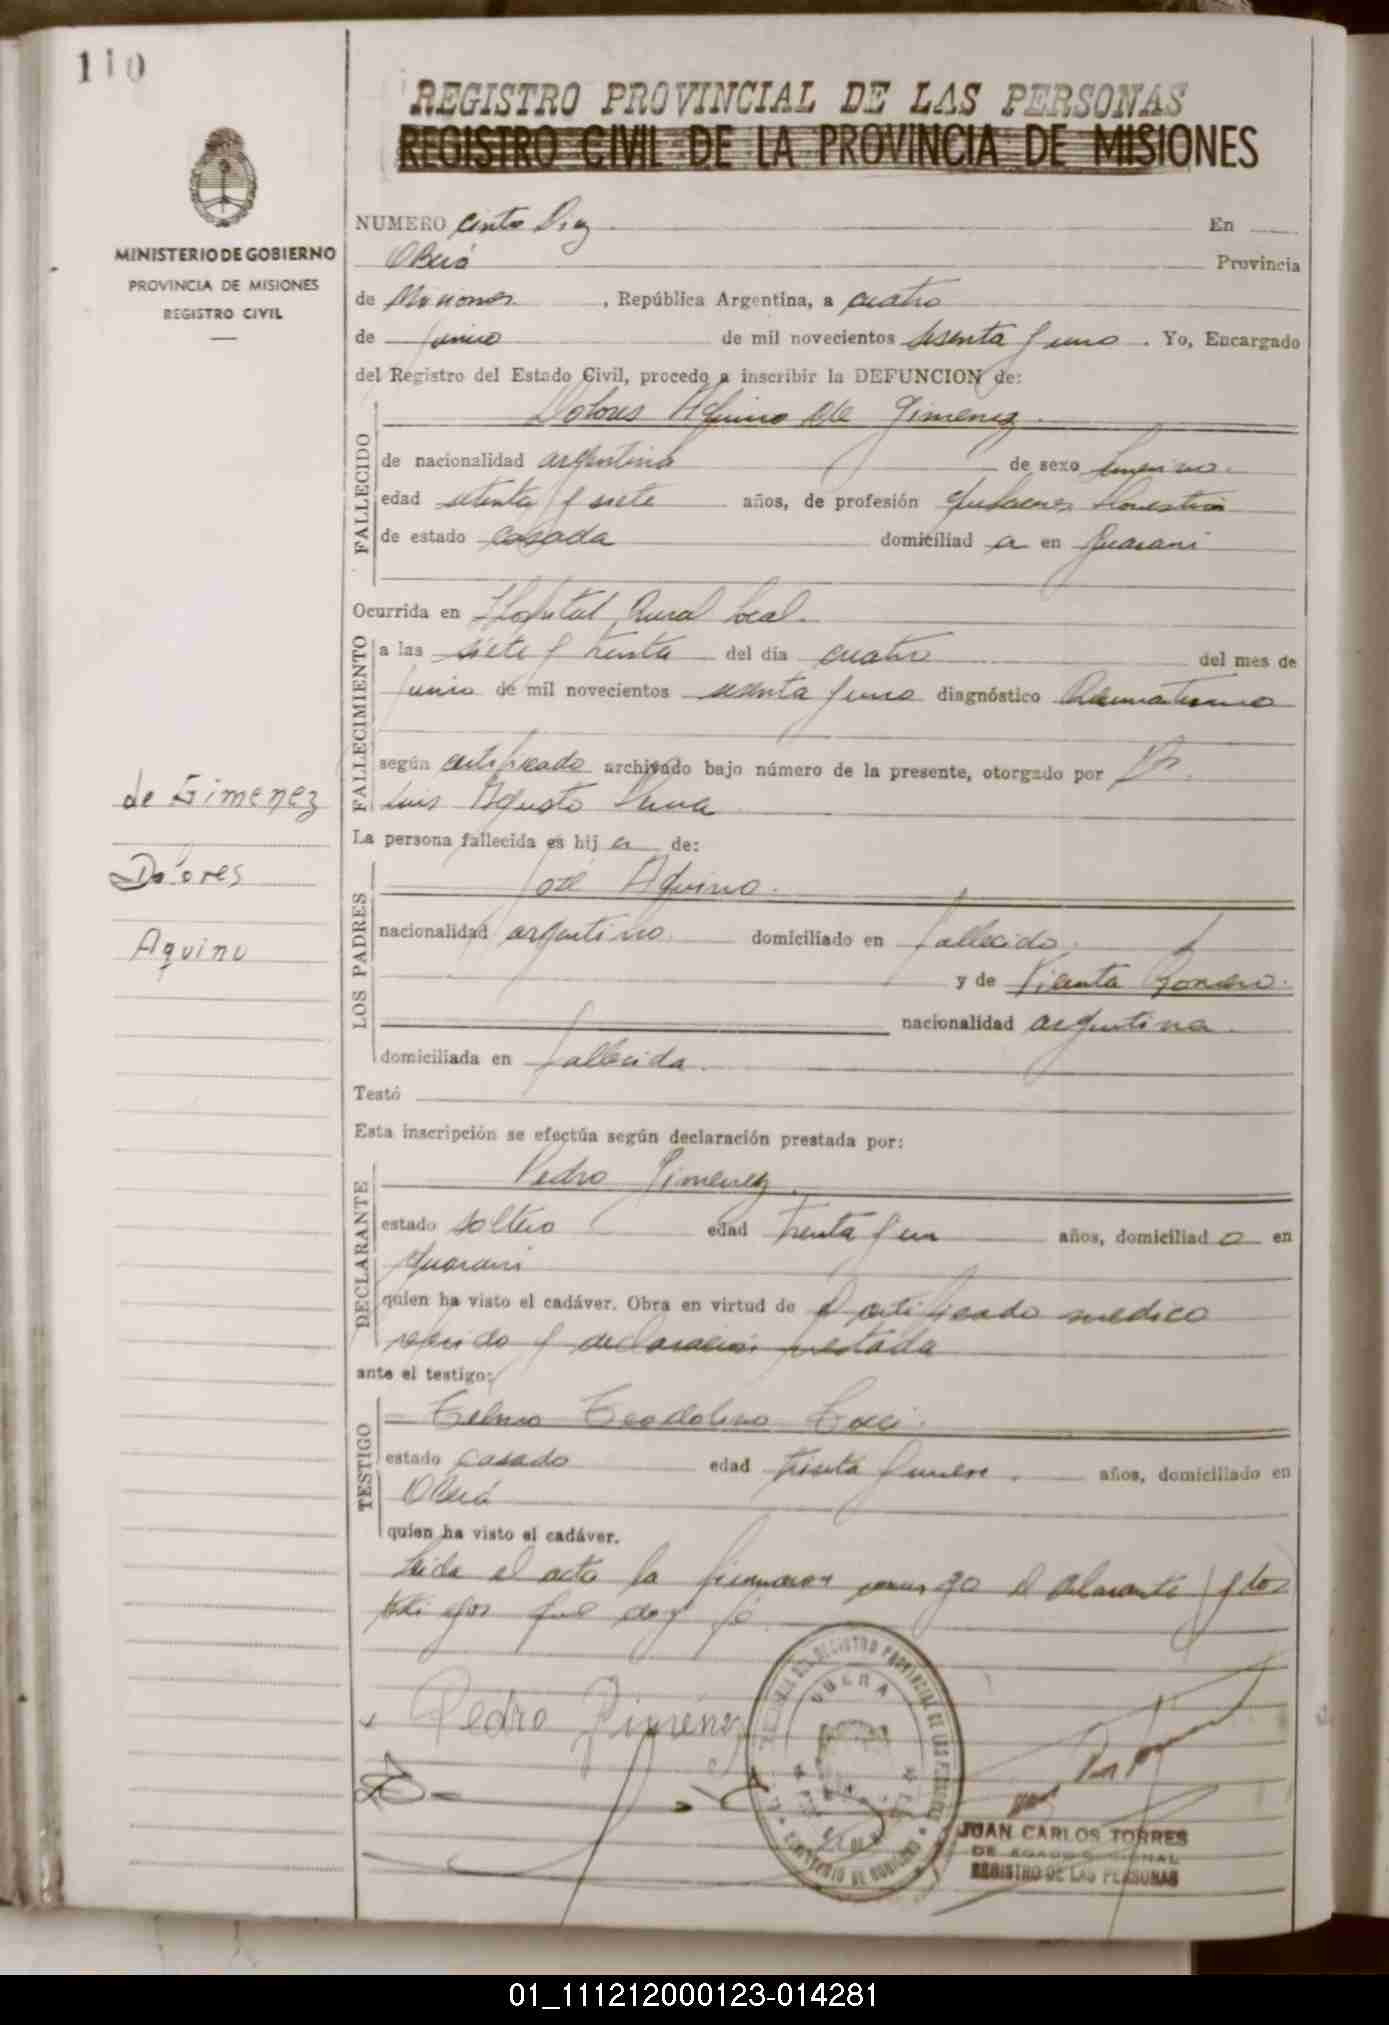 110
REGISTRO PROVINCIAL DE LAS PERSONAS
REGISTRO CIVIL DE LA PROVINCIA DE MISIONES
MINISTERIO DE GOBIERNO
PROVINCIA DE MISIONES
REGISTRO CIVIL
NUMERO ciento Diez En
Oberá Provincia
de Misiones, República Argentina, a cuatro
de Junio de mil novecientos sesenta y uno. Yo, Encargado
del Registro del Estado Civil, procedo a inscribir la DEFUNCION de:
Dolores Aquino de Gimenez.
FALLECIDO
de nacionalidad argentina de sexo femenino.
edad setenta y siete años, de profesión quehaceres domestico
de estado casada domiciliad a en Guarani
Ocurrida en Hospital Rural local.
FALLECIMIENTO
a las siete y treinta del día cuatro del mes de
Junio de mil novecientos sesenta y uno diagnóstico Reumatismo
según certificado archivado bajo número de la presente, otorgado por Dr.
Luis Agusto
de Gimenez
Dolores
Aquino
La persona fallecida es hij a de:
LOS PADRES
José Aquino.
nacionalidad argentino domiciliado en fallecido.
y de Vicenta Romero.
nacionalidad argentina.
domiciliada en fallecida.
Testó
Esta inscripción se efectúa según declaración prestada por:
DECLARANTE
Pedro Gimenez.
estado soltero edad treinta y un años, domiciliad o en
Guarani
quien ha visto el cadáver. Obra en virtud de el certificado medico
referido y declaración prestada
ante el testigo:
TESTIGO
Telmo Teodolino
estado casado edad treinta y nueve. años, domiciliado en
Oberá
quien ha visto el cadáver.
Leida el acta la firmaron conmigo el declarante y los
testigos que doy fe
Pedro Giménez
OBERA
JUAN CARLOS TORRES
REGISTRO DE LAS PERSONAS
01_111212000123-014281